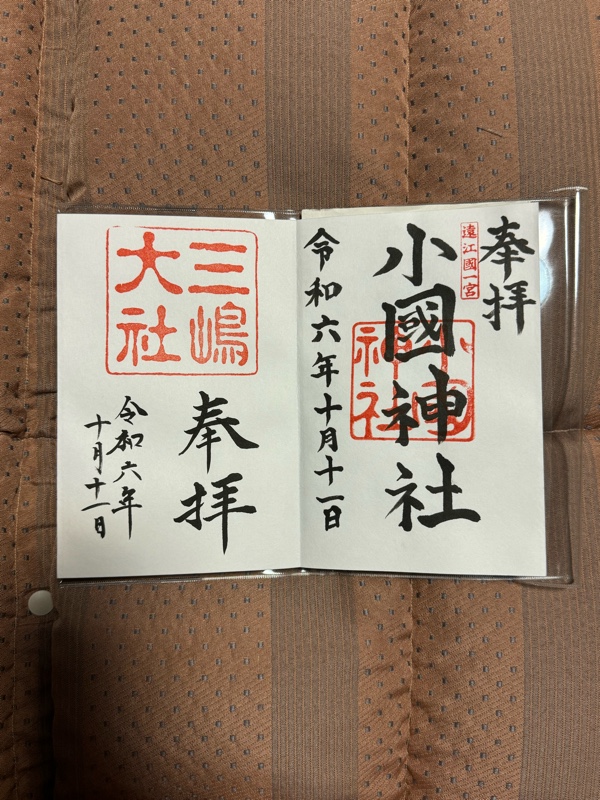 奉拝
遠江國一宮
小國神社
小國神社
令和六年十月十一日
三嶋
大社
奉拝
令和六年
十月十一日